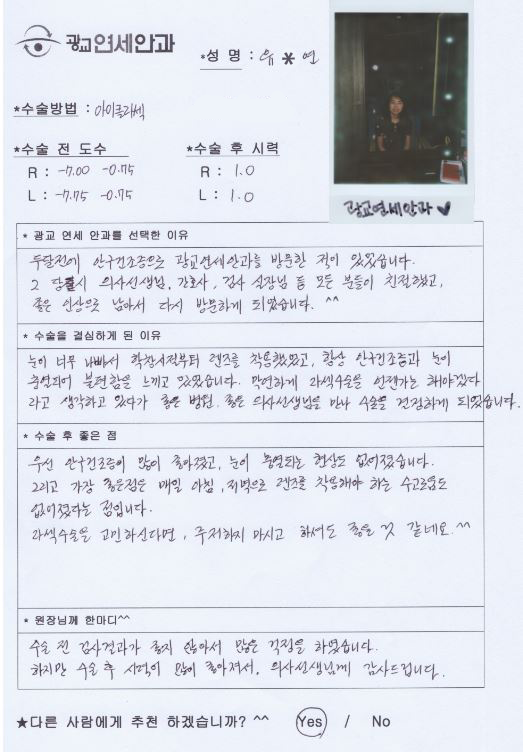 광교연세안과
*성 명 : 유*연
*수술방법 : 아이라섹
*수술 전 도수
R : -7.00 -0.75
L : -7.75 -0.75
*수술 후 시력
R : 1.0
L : 1.0
광교연세안과♥
* 광교 연세 안과를 선택한 이유
두달전에 안구건조증으로 광교연세안과를 방문한 적이 있었습니다.
그 당시 의사선생님, 간호사, 검사 실장님 등 모든 분들이 친절했고,
좋은 인상으로 남아서 다시 방문하게 되었습니다. ^^
* 수술을 결심하게 된 이유
눈이 너무 나빠서 학창시절부터 렌즈를 착용했었고, 항상 안구건조증과 눈이
충혈되어 불편함을 느끼고 있었습니다. 막연하게 라섹수술을 언젠가는 해야겠다
라고 생각하고 있다가 좋은 병원, 좋은 의사선생님을 만나 수술을 결정하게 되었습니다.
* 수술 후 좋은 점
우선 안구건조증이 많이 좋아졌고, 눈이 충혈되는 현상도 없어졌습니다.
그리고 가장 좋은점은 매일 아침, 저녁으로 렌즈를 착용해야 하는 수고로움도
없어졌다는 점입니다.
라섹수술을 고민하신다면, 주저하지 마시고 하셔도 좋을 것 같네요.^^
* 원장님께 한마디^^
수술 전 검사결과가 좋지 않아서 많은 걱정을 하였습니다.
하지만 수술 후 시력이 많이 좋아져서, 의사선생님께 감사드립니다.
★다른 사람에게 추천 하겠습니까? ^^ Yes / No